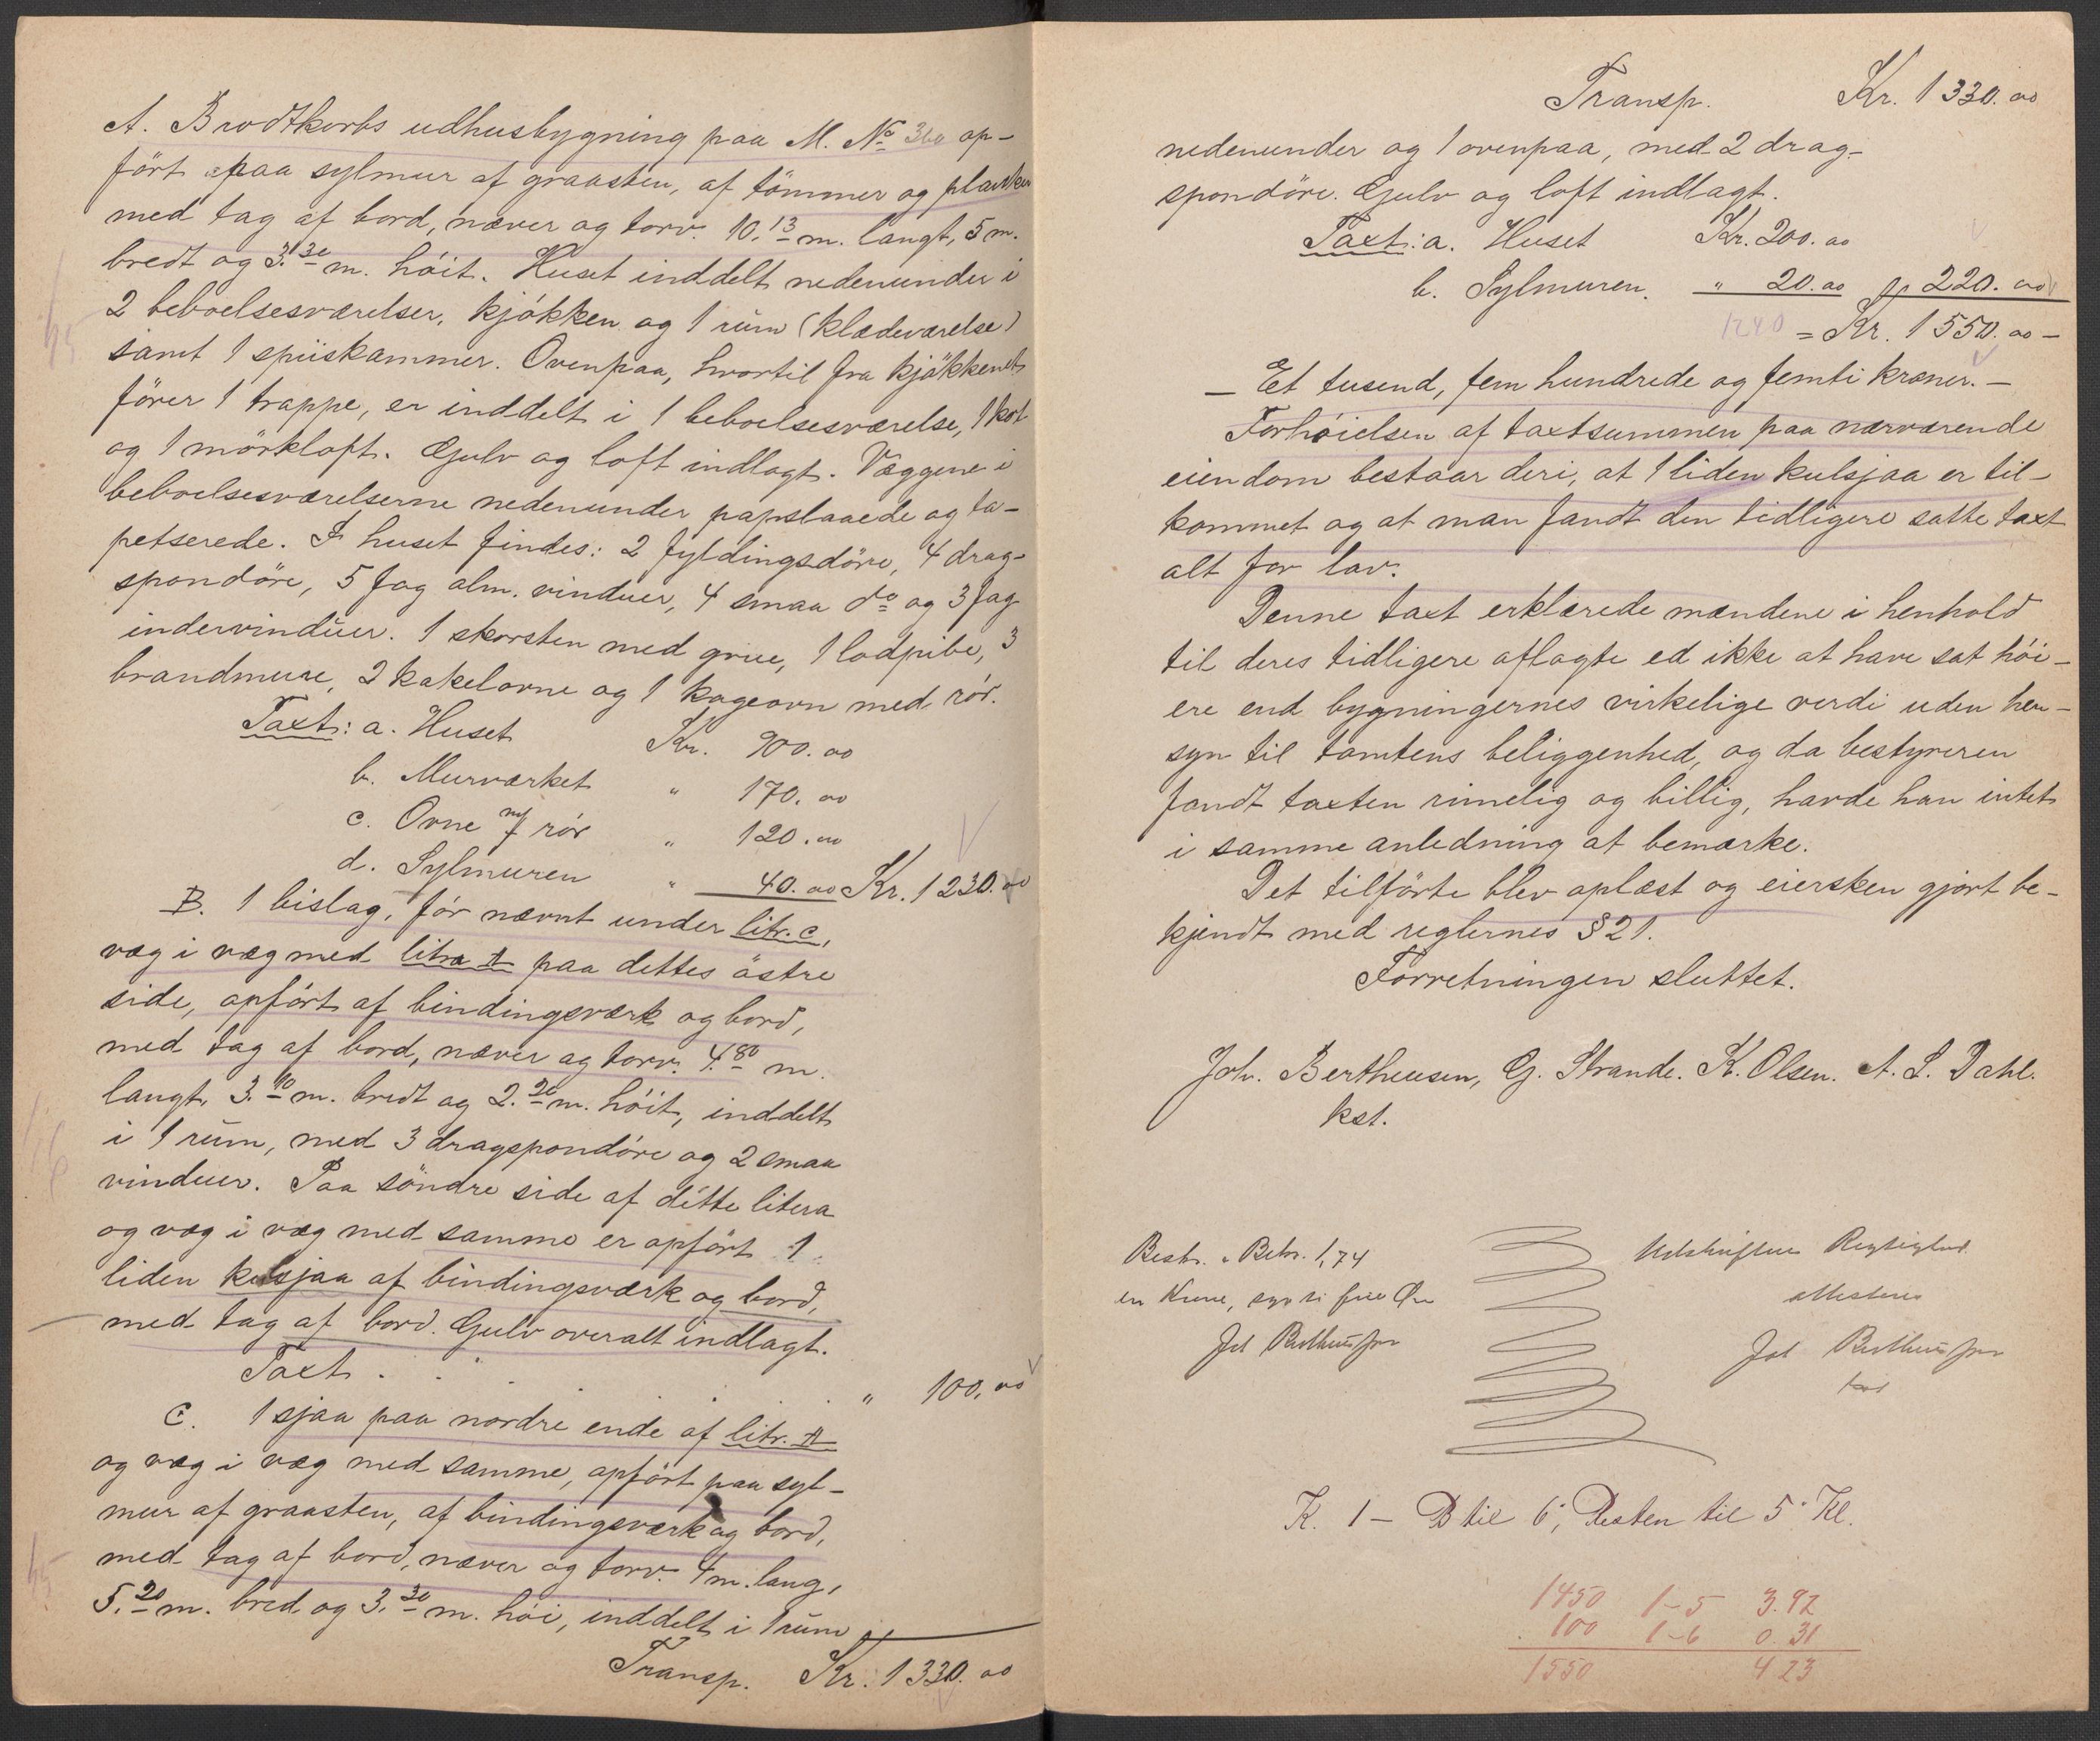 A. Brodtkorbs udhusbygning paa M. No 36a op-
ført paa sylmur af graasten, af tömmer og planker
med tag af bord, næver og torv. 10.13 m. langt, 5 m.
bredt og 3.30 m. høit. Huset inddelt nedenunder i
2 beboelsesværelser, kjøkken og 1 rum (klædeværelse)
samt 1 spiiskammer. Ovenpaa, hvortil fra kjøkkenet
fører 1 trappe, er inddelt i 1 beboelsesværelse, 1 kot
og 1 mörkloft. Gulv og loft indlagt. Væggene i
beboelsesværelserne nedenunder papslaaede og ta-
petserede. I huset findes: 2 fyldingsdöre, 4 drag-
spondöre, 5 fag alm. vinduer, 4 smaa do og 3 fag
indervinduer. 1 skorsten med grue, 1 lodpibe, 3
brandmure, 2 kakelovne og 1 kogeovn med rör.
Taxt: a. Huset Kr. 900.00
b. Murværket " 170.00
c. Ovne m/ rör " 120.00
d. Sylmuren " 40.00 Kr. 1230.00
B. 1 bislag, för nævnt under litr. c,
væg i væg med litra A paa dettes östre
side, opført af bindingsværk og bord,
med tag af bord, næver og torv. 4.80 m.
langt, 3.10 m. bredt og 2.20 m. høit, inddelt
i 1 rum, med 3 dragspondöre og 2 smaa
vinduer. Paa söndre side af dette litera
og væg i væg med samme er opført 1
liden kulsjaa af bindingsværk og bord,
med tag af bord. Gulv overalt indlagt.
Taxt . . . . . . " 100.00
C. 1 sjaa paa nordre ende af litr. A
og væg i væg med samme, opført paa syl-
mur af graasten, af bindingsværk og bord,
med tag af bord, næver og torv. 4 m. lang,
5.20 m. bred og 3.30 m. høi, inddelt i 1 rum
Transp. Kr. 1330.00
Transp. Kr. 1330.00
nedenunder og 1 ovenpaa, med 2 drag-
spondöre. Gulv og loft indlagt.
Taxt: a. Huset Kr. 200.00
b. Sylmuren. " 20.00 " 220.00
1240 = Kr. 1550.00 —
— Et tusend, fem hundrede og femti kroner. —
Forhøielsen af taxtsummen paa nærværende
eiendom bestaar deri, at 1 liden kulsjaa er til-
kommet og at man fandt den tidligere satte taxt
alt for lav.
Denne taxt erklærede mændene i henhold
til deres tidligere aflagte ed ikke at have sat høi-
ere end bygningernes virkelige verdi uden hen-
syn til tomtens beliggenhed, og da bestyreren
fandt taxten rimelig og billig, havde han intet
i samme anledning at bemærke.
Det tilførte blev oplæst og eiersken gjort be-
kjendt med reglernes § 21.
Forretningen sluttet.
Joh. Bertheusen, G. Strande. K. Olsen. A. L. Dahl.
kst.
Bestr. Betr. 1,74
en Krone, sytti fire Øre
Joh Bertheusen
Udskriftens Rigtighed
attesteres
Joh Bertheusen
kst
K. 1 – B til 6, Resten til 5 Kl.
1450 1-5 3.92
100 1-6 0.31
1550 4 23